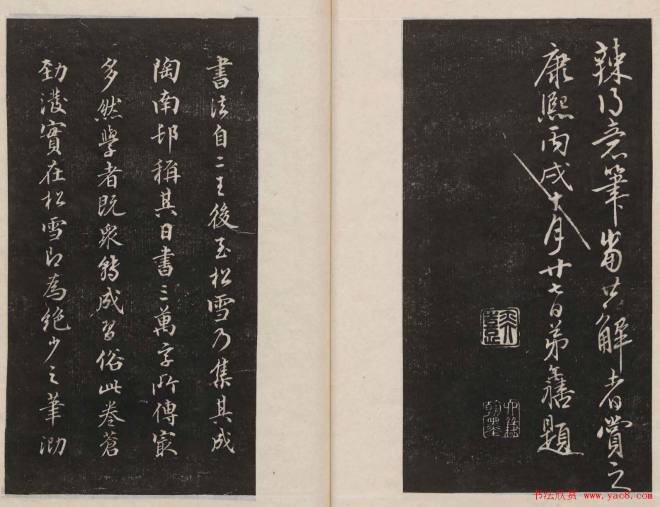 辣得意筆當共解者賞之
康熙丙戌十月廿七日弟題
書法自二王後至松雪乃集其成
陶南邨稱其日書三萬字所傳㝡
多然學者既衆轉成習俗此卷蒼
勁實在松雪即為絶少之筆泐
书法欣赏 www.yac8.com